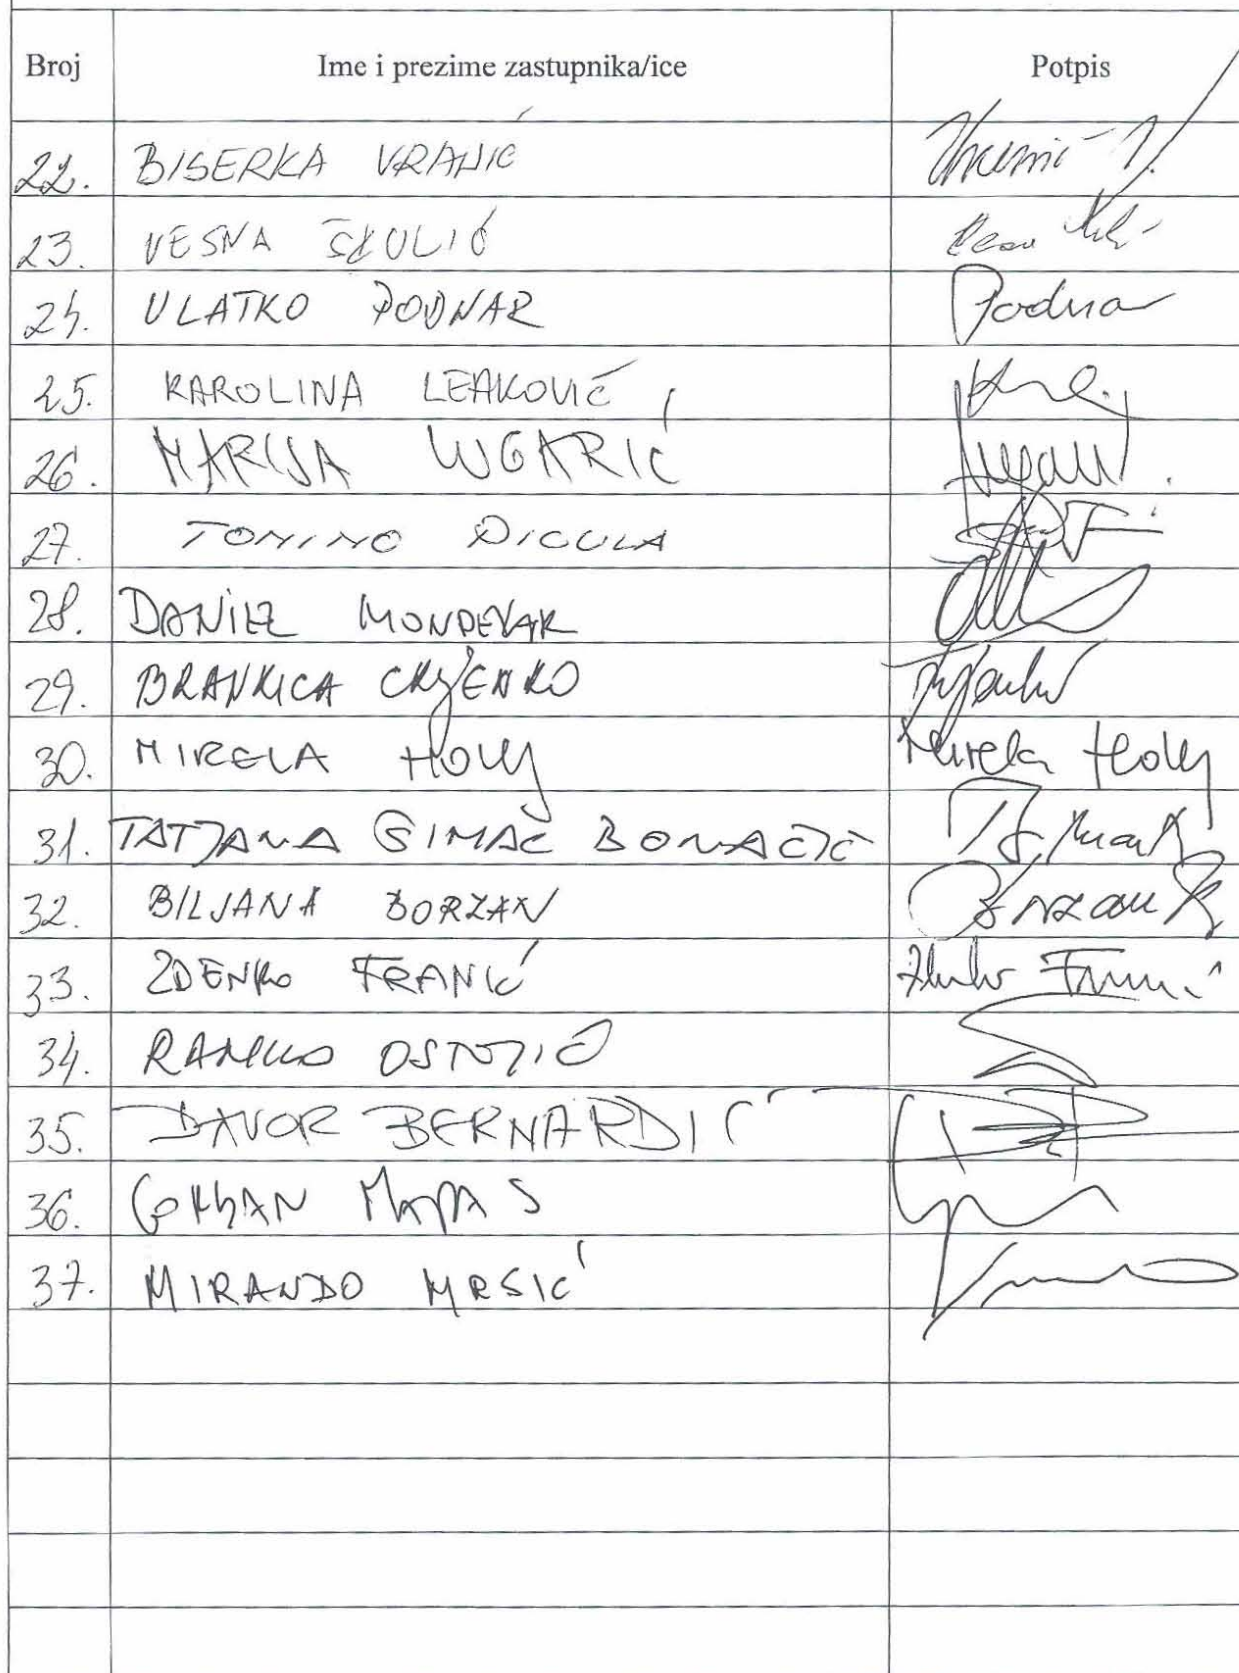 Broj Ime i prezime zastupnika/ice Potpis
22. BISERKA VRANIĆ
23. VESNA ŠKULIĆ
24. VLATKO PODNAR Podnar
25. KAROLINA LEAKOVIĆ
26. MARIJA LUGARIĆ
27. TONINO PICULA
28. DANIEL MONDEKAR
29. BRANKICA CRLJENKO
30. MIRELA HOLY Mirela Holy
31. TATJANA ŠIMAC BONAČIĆ
32. BILJANA BORZAN Borzan B
33. ZDENKO FRANIĆ Zdenko Franić
34. RANKO OSTOJIĆ
35. DAVOR BERNARDIĆ
36. GORDAN MARAS
37. MIRANDO MRSIĆ